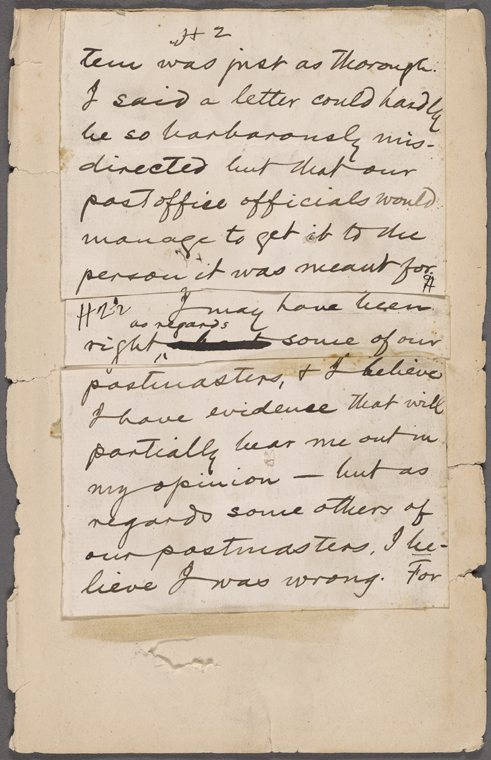 H 2
tem was just as thorough.
I said a letter could hardly
be so barbarously mis-
directed but that our
postoffice officials would
manage to get it to the
person it was meant for.
H22 I may have been
as regards
right some of our
postmasters, & I believe
I have evidence that will
partially bear me out in
my opinion — but as
regards some others of
our postmasters, I be-
lieve I was wrong. For